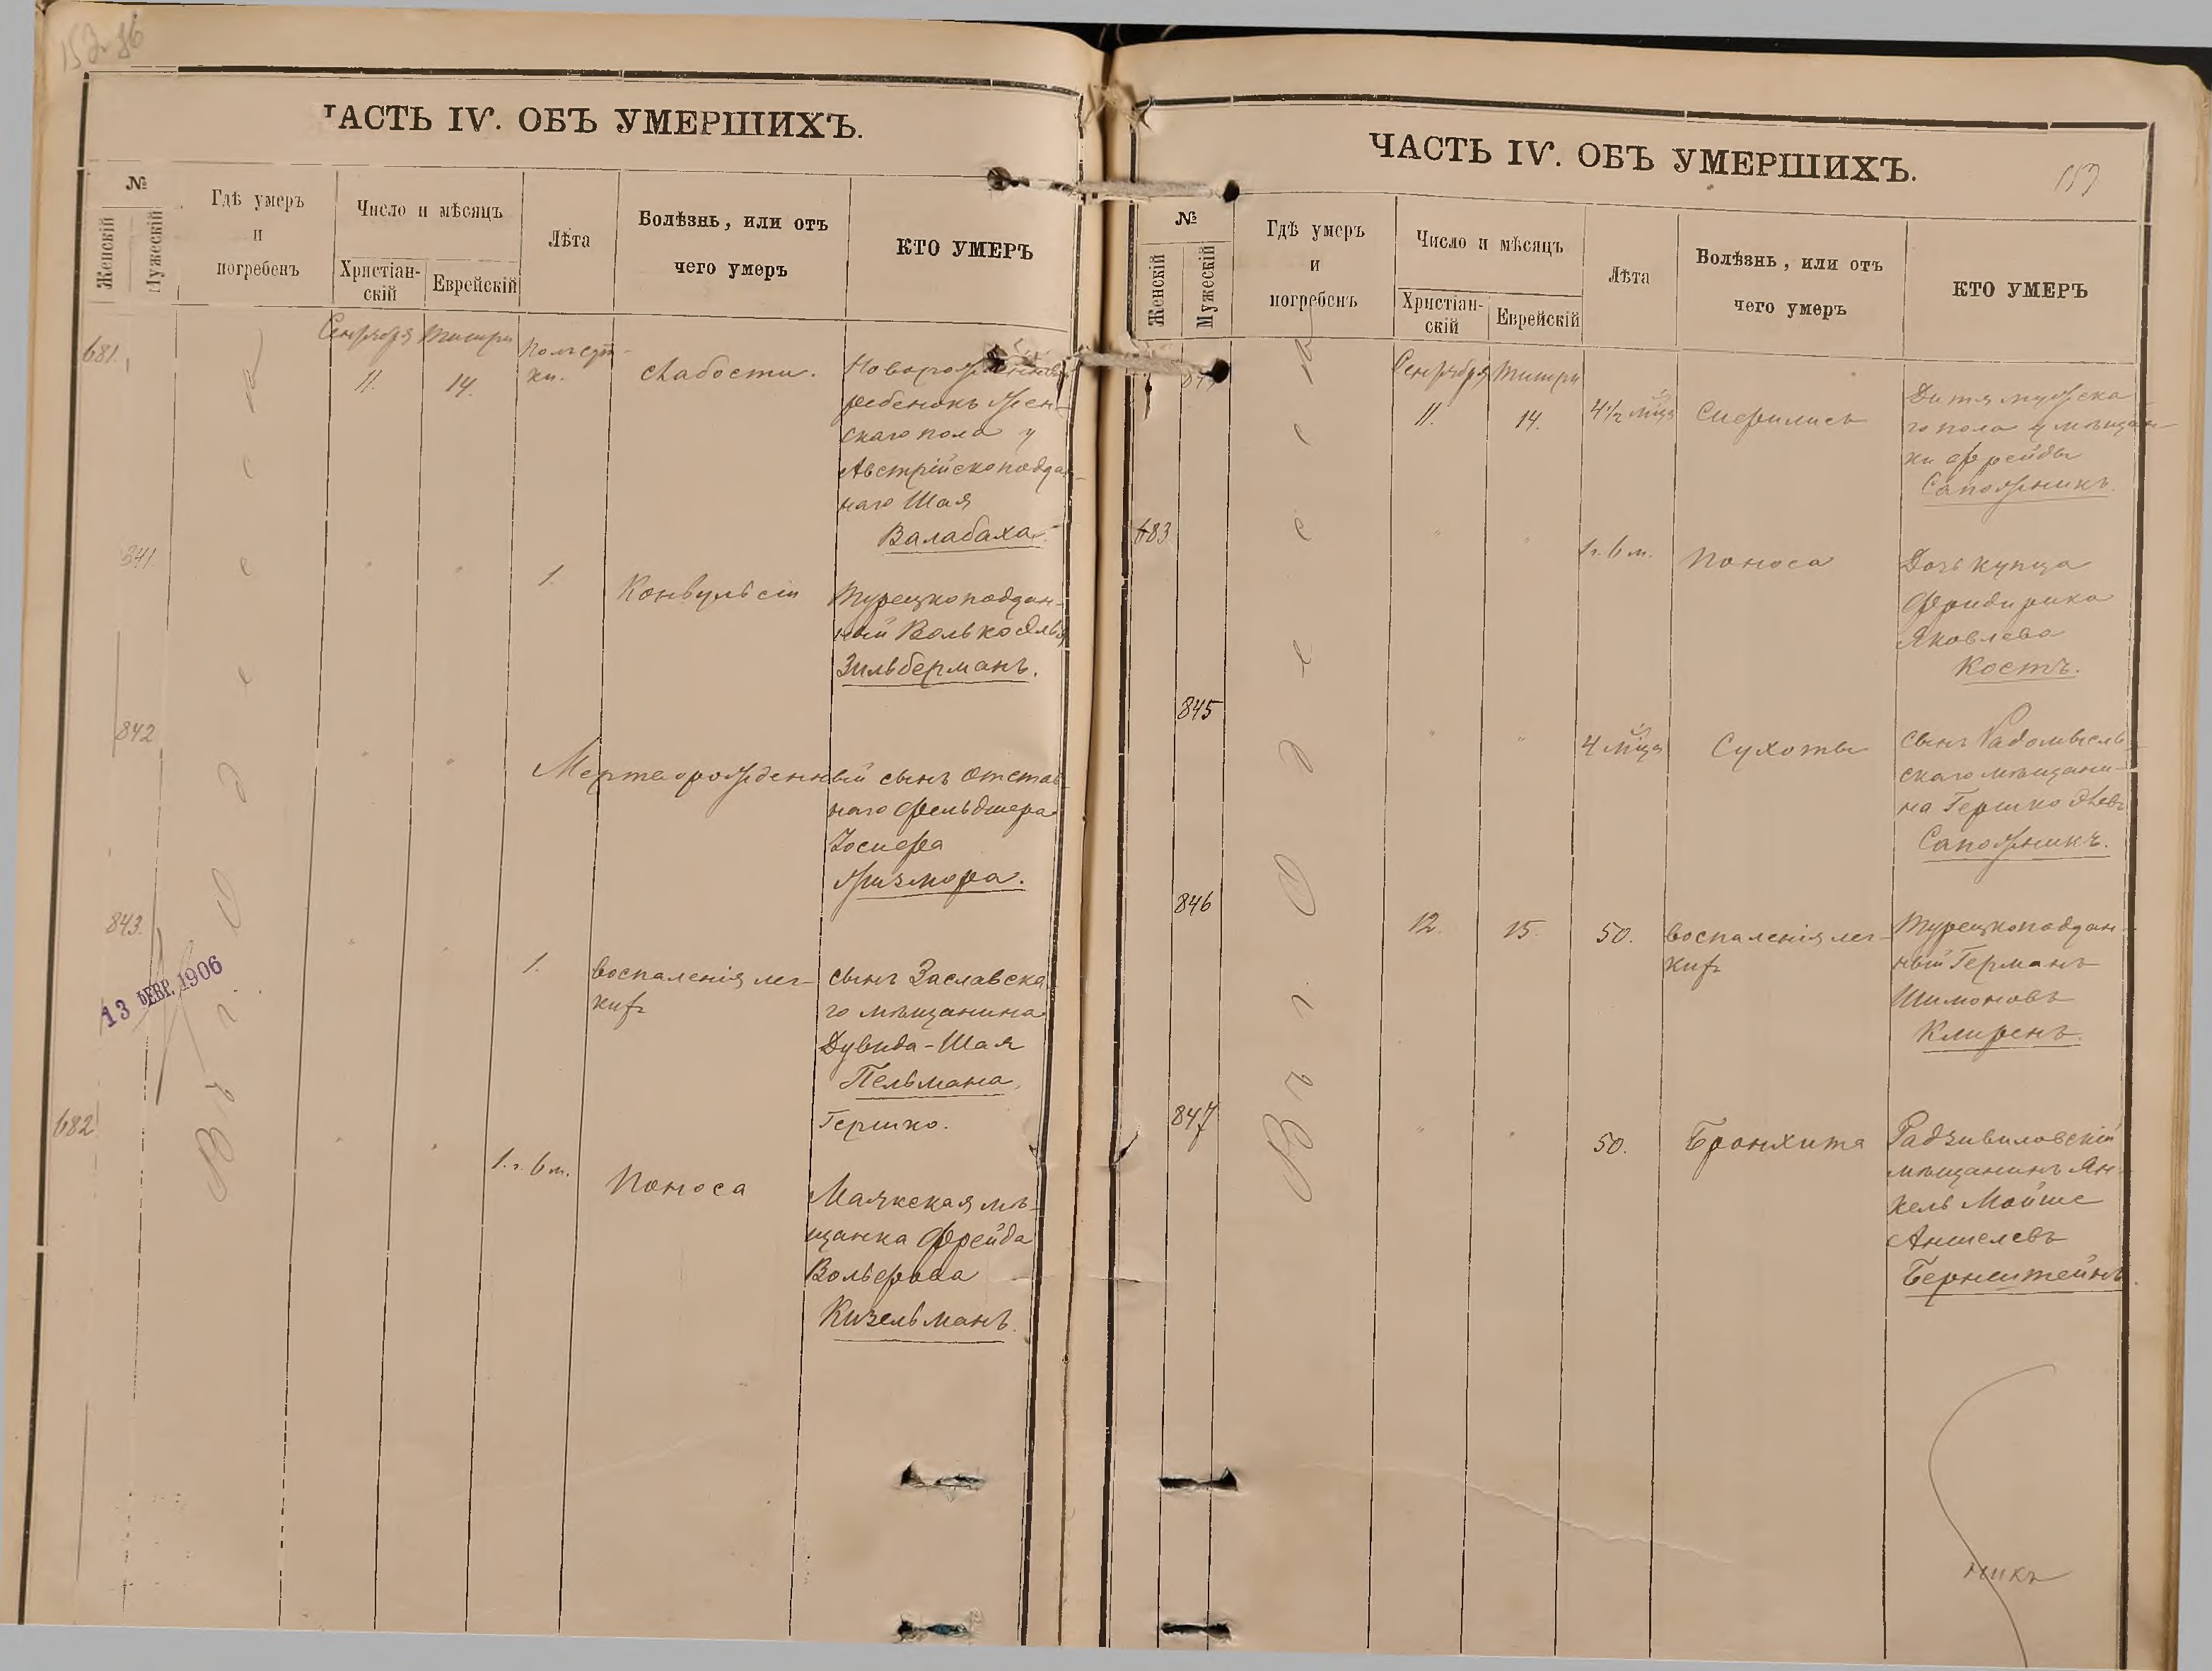 152 об
ЧАСТЬ IV. ОБЪ УМЕРШИХЪ.
№
Женскій
Мужескій
Гдѣ умеръ
и
погребенъ
Число и мѣсяцъ
Христіан-
скій
Еврейскій
Лѣта
Болѣзнь, или отъ
чего умеръ
КТО УМЕРЪ
Въ г. Одессѣ
681.
Сентября
Тишри
11.
14.
Полсут-
ки.
Слабости.
Новорожденный
ребенокъ жен-
скаго пола у
Австрійскоподдан-
наго Шая
Валабаха.
841.
"
"
1.
Конвульсіи
Турецкоподдан-
ный Волько
Зильберманъ.
842
"
"
Мертворожденный сынъ отстав-
наго фельдшера
Іосифа
Жизмора.
843.
"
"
1.
Воспаленія лег-
кихъ
сынъ Заславска
го мѣщанина
Дувида-Шая
Пельмана,
Гершко.
13 ФЕВР. 1906
682
"
"
1. г. 6 м.
Поноса
Маякская мѣ-
щанка Фрейда
Вольфова
Кизельманъ.
ЧАСТЬ IV. ОБЪ УМЕРШИХЪ.
153
№
Женскій
Мужескій
Гдѣ умеръ
и
погребенъ
Число и мѣсяцъ
Христіан-
скій
Еврейскій
Лѣта
Болѣзнь, или отъ
чего умеръ
КТО УМЕРЪ
Въ г. Одессѣ
Сентября
Тишри
11.
14.
4½ мѣця
Сифилисъ
Дитя мужска
го пола у мѣщан-
ки Фрейды
Сапожникъ.
683
"
"
1 г. 6 м.
Поноса
Дочь купца
Фридириха
Яковлева
Костъ.
845
"
"
4 мѣця
Сухоты
сынъ Радомысль-
скаго мѣщани-
на Гершко
Сапожникъ.
846
12.
15.
50.
Воспаленія лег-
кихъ
Турецкоподдан-
ный Германъ
Шимоновъ
Клиренъ.
847
"
"
50.
Бронхита
Радзивиловскій
мѣщанинъ Ян-
кель Мойше
Аншелевъ
Бернштейнъ.
никъ